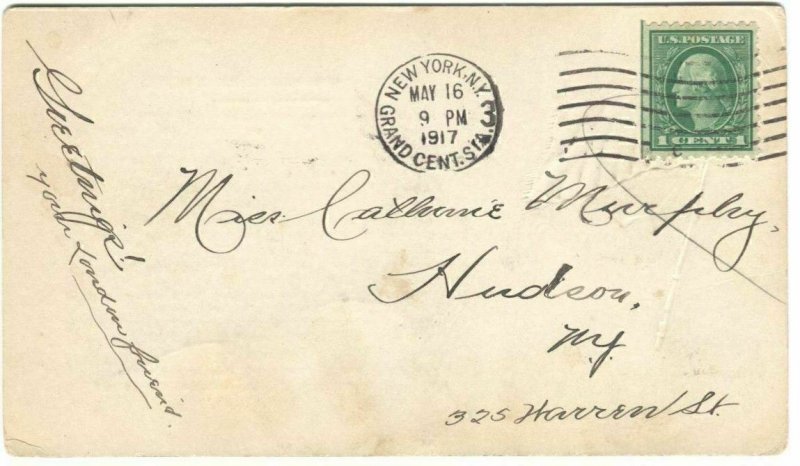 Greetings!
your London friend.
NEW YORK, N.Y.
MAY 16
9 PM
1917
GRAND CENT. STA.
3
U.S. POSTAGE
1 CENT 1
Miss Catherine Murphy,
Hudson,
N.Y.
325 Warren St.